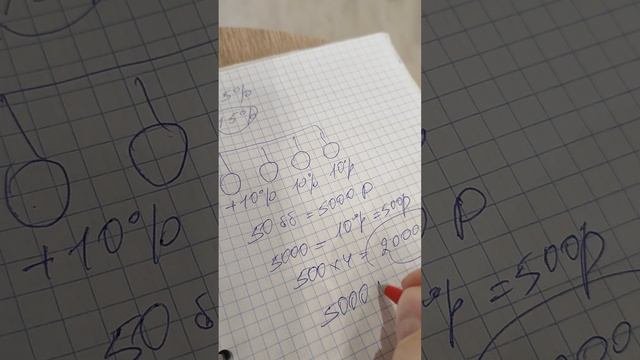 5%
15%
+10% 10% 10%
50 бб = 5000 р
5000 = 10% = 500р
500 x 4 = 2000
5000